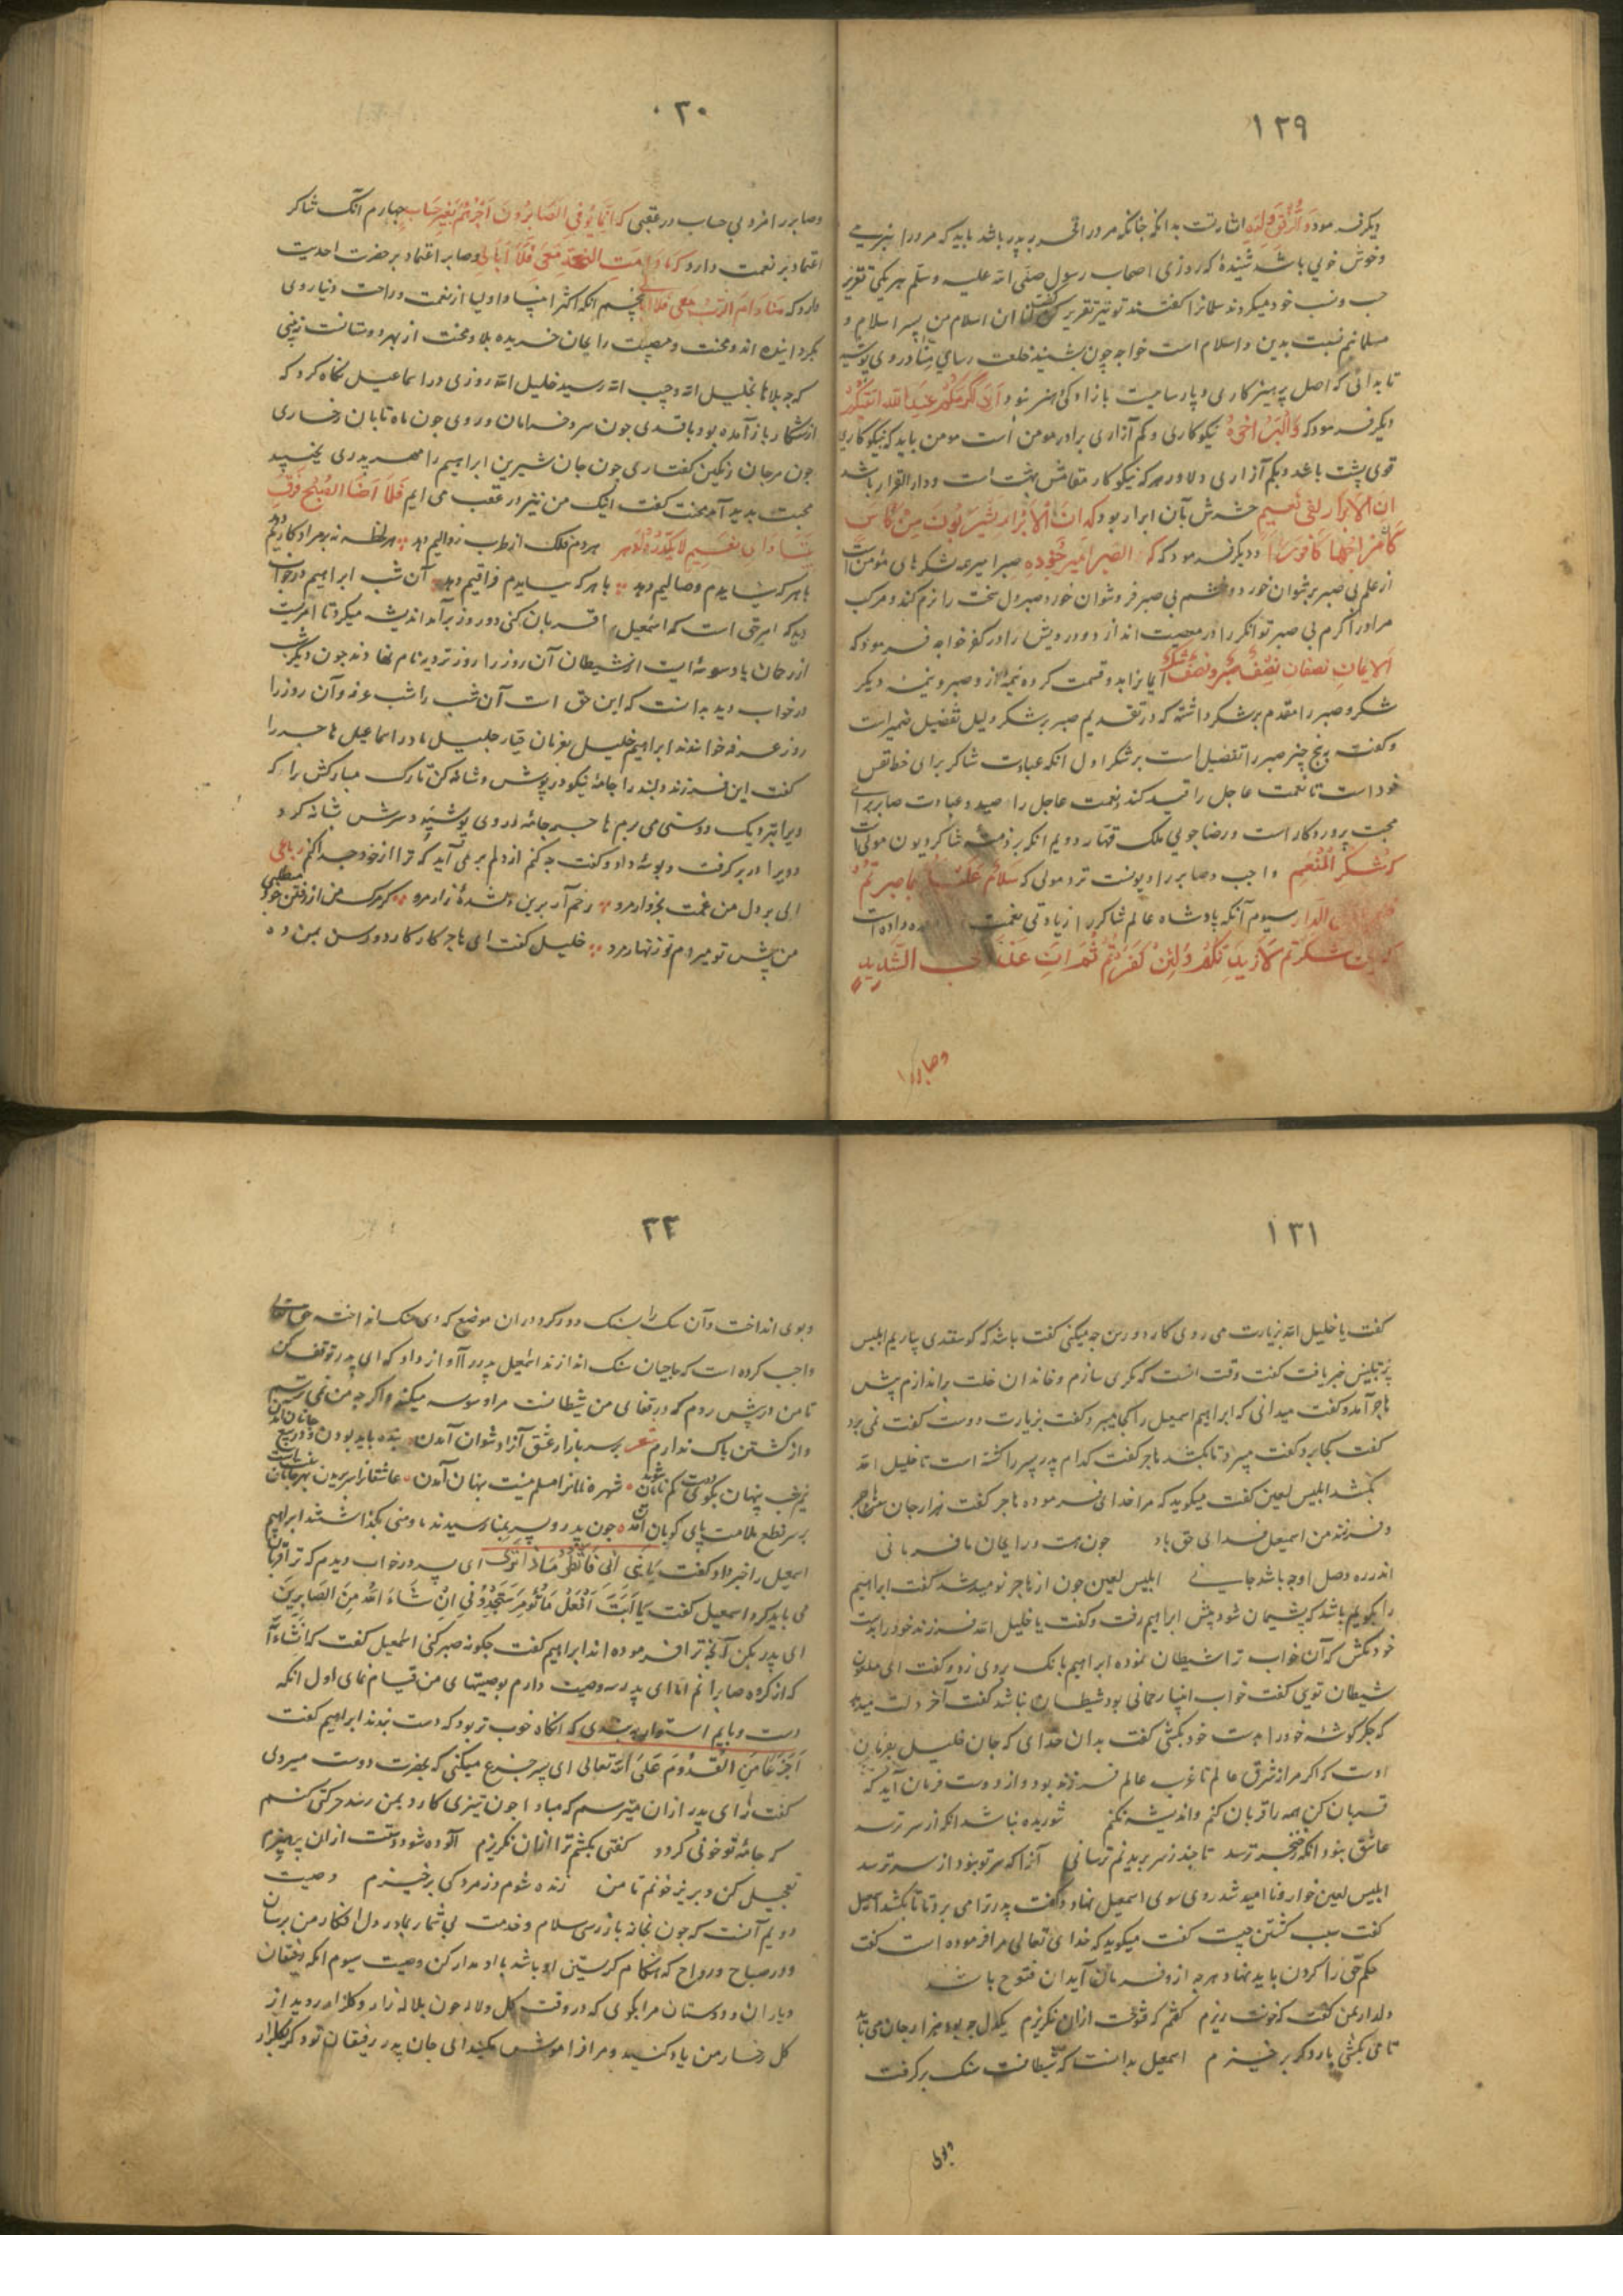 ١٢٩
دیکر فرمود والرفق والده اشارتست بدانکه چنانکه مرد را فخر به پدر باشد باید که مرد را بنرمی
و خوش خویی باشد شنیدۀ که روزی اصحاب رسول صلی الله علیه وسلم هر یکی تقریر
حسب و نسب خود میکردند سلمانرا گفتند تو نیز تقریر کن گفت انا ابن اسلام من پسر اسلام و
مسلمانیم نسبت بدین و اسلام است خواجه چون بشنید خلعت سلمان منا در وی پوشید
تا بدانی که اصل پرهیزکاری و پارساییت بازادکی و هنر نبود ان اکرمکم عند الله اتقیکم
دیکر فرمود که والبر اخوه نیکوکاری و کم آزاری برادر مومن است مومن باید که بنیکوکاری
قوی پشت باشد و بکم آزاری دلاور هر که نیکوکار مقامش بهشت است و دار القرار باشد
ان الابرار لفی نعیم خشش بآن ابرار بود که ان الابرار یشربون من کاس
کان مزاجها کافورا و دیکر فرمود که الصبر امیر جنوده صبر امیر عسکرهای مؤمن است
از علم بی صبر بر نتوان خورد و خشم بی صبر فرو نتوان خورد صبر دل سخت را نرم کند و مرکب
مراد را کرم بی صبر توانکر را در معصیت اندازد و درویش را در کفر خواجه فرمود که
الایمان نصفان نصف صبر و نصف شکر ایمانرا بدو قسمت کرده نیمۀ از و صبر و نیمۀ دیکر
شکر و صبر را مقدم بر شکر داشته که در تقدیم صبر بر شکر دلیل تفضیل ضمیر است
و کفت پنج چیز صبر را تفضیل است بر شکر اول انکه عبادت شاکر برای حظ نفس
خود است تا نعمت عاجل را قید کند و نعمت عاجل را صید و عبادت صابر برای
محبت پروردکار است و رضاجویی ملک قهار دویم انکه بر ذمت شاکر دیون مولی است
که شکر المنعم واجب و صابر را دیونست نزد مولی که سلام علیکم بما صبرتم
الدار سیوم آنکه پادشاه عالم شاکر را زیادتی نعمت وعده داده است
لئن شکرتم لازیدنکم ولئن کفرتم ان عذابی لشدید
وصابررا
٠٣٠
و صابر را مزد بی حساب در عقبی که انما یوفی الصابرون اجرهم بغیر حساب چهارم آنک شاکر
اعتماد بر نعمت دارد که ما دامت النعمة معی فلا ابالی و صابر اعتماد بر حضرت احدیت
دارد که ما دام الرب معی فلا ابالی پنجم انکه اکثر انبیا و اولیا از نعمت و راحت دنیا روی
بکردانیده اند و محنت و مصیبت را بجان خریده بلا و محنت از بهر دوستانست نه بینی
که چه بلاها بخلیل الله و حبیب الله رسید خلیل الله روزی در اسماعیل نکاه کرد که
از شکار باز آمده بود با قدی چون سرو خرامان و روی چون ماه تابان رخساری
چون مرجان رنکین گفتاری چون جان شیرین ابراهیم را مهر پدری بجنبید
محبت پدید آمد محنت کفت اینک من نیز در عقب می ایم فلا اضا الصبح فرق
بیننا و ای نعیم لا یکدره الدهر هر دم فلک از طرب زوالیم دهد هر لحظه نه بر مراد کاریم دهد
با هر که نسازم وصالیم دهد با هر که بسازم فراقیم دهد آن شب ابراهیم در خواب
دید که امر حق است که اسمعیل را قربان کنی دو روز برآمد اندیشه میکرد تا امریست
از رحمان یا وسوسۀ ایست از شیطان آن روز را روز ترویه نام نهادند چون دیکر شب
در خواب دید بدانست که این حق است آن شب را شب عرفه و آن روز را
روز عرفه خواندند ابراهیم خلیل بفرمان جبار جلیل مادر اسماعیل هاجر را
کفت این فرزند دلبند را جامۀ نیکو در پوش و شانه کن تارک مبارکش را که
ویرا بنزدیک دوستی می برم هاجر جامه در وی پوشید و سرش شانه کرد
و ویرا در بر کرفت و بوسۀ داد و گفت چه کنم از دلم بر نمی آید که ترا از خود جدا کنم رباعی
ای بر دل من غمت بخروار مرو زخم آر برین دلشدۀ زار مرو کر مرک من از رفتن خود میطلبی
من پیش تو میرم تو زنهار مرو خلیل گفت ای هاجر کار کارد و رسن بمن ده
١٣١
کفت یا خلیل الله بزیارت می روی کارد و رسن چه میکنی کفت باشد که کوسفندی بیاریم ابلیس
پر تلبیس خبر یافت کفت وقت آنست که مکری سازم و خاندان خلت براندازم پیش
هاجر آمد و کفت میدانی که ابراهیم اسمعیل را کجا میبرد کفت بزیارت دوست کفت نمی برد
کفت کجا برد کفت میبرد تا بکشد هاجر کفت کدام پدر پسر را کشته است تا خلیل الله
بکشد ابلیس لعین کفت میکوید که مرا خدای فرموده هاجر گفت هزار جان من هاجر
و فرزند من اسمعیل فدای حق باد چون هست در ایمان ما قربانی
اندر ره وصل او چه باشد جانی ابلیس لعین چون از هاجر نومید شد گفت ابراهیم
را بکویم باشد که پشیمان شود پیش ابراهیم رفت و کفت یا خلیل الله فرزند خود را بدست
خود مکش که آن خواب ترا شیطان نموده ابراهیم بانک بر وی زد و گفت ای ملعون
شیطان تویی کفت خواب انبیا رحمانی بود شیطانی نباشد کفت آخر دلت میدهد
که جکر کوشۀ خود را بدست خود بکشی کفت بدان خدای که جان خلیل بفرمان
اوست که اکر مرا از شرق عالم تا غرب عالم فرزند بود و از دوست فرمان آید که
قربان کن همه را قربان کنم و اندیشه نکنم شوریده نباشد انکه از سر ترسد
عاشق نبود انکه ز خنجر ترسد تا چند ز سر بریدنم ترسانی آنرا که سر تو بود از سر ترسد
ابلیس لعین خوار و نا امید شد روی سوی اسمعیل نهاد و کفت پدر ترا می برد تا بکشد اسمعیل
کفت سبب کشتن چیست کفت میکوید که خدای تعالی مرا فرموده است کفت
حکم حق را کردن باید نهاد هر چه از و فرمان آید آن فتوح باشد
دلدار بمن کفت که خونت ریزم کفتم که خوشت ازان نکریزم یکدل چه بود هزار جان می باید
تا می کشی بار دکر برخیزم اسمعیل بدانست که شیطانست سنک برکرفت
وبوی
٣٣
و بوی انداخت و آن سک را بسنک دور کرد در ان موضع که وی سنک انداخت حق تعالی
واجب کرده است که حاجیان سنک اندازند اسمعیل پدر را آواز داد که ای پدر توقف کن
تا من در پیش روم که در قفای من شیطانست مرا وسوسه میکند و اکر چه من نمی ترسم
و از کشتن باک ندارم شعر بر سر بازار عشق آزاد نتوان آمدن بنده باید بودن و در بیع جانان آمدن
نیم شب پنهان بکوی دوست کم نامان شوند شهره نامانرا مسلم نیست پنهان آمدن عاشقانرا سر بریدن بهر جانان
بر سر قطع ملامت پای کوبان آمدن چون پدر و پسر بمنا رسیدند ما و منی بکذاشتند ابراهیم
اسمعیل را خبر داد و کفت یا بنی انی فانظر ماذا تری ای پسر در خواب دیدم که ترا قربان
می باید کرد اسمعیل گفت یا ابت افعل ما تؤمر ستجدنی ان شاء الله من الصابرین
ای پدر بکن آنچه ترا فرموده اند ابراهیم گفت چکونه صبر کنی اسمعیل گفت که انشاء الله
که از کروه صابرانم اما ای پدر سه وصیت دارم بوصیتهای من قیام نمای اول انکه
دست و پایم استوار ببندی که انکاه خوب تر بود که دست نبندند ابراهیم گفت
اجزعا من القدوم علی الله تعالی ای پسر جزع میکنی که بحضرت دوست میروی
کفت نه ای پدر ازان میترسم که مبادا چون تیزی کارد بمن رسد حرکتی کنم
که جامۀ تو خونی کردد کفتی بکشم ترا ازان نکریزم آلوده شود دستت ازان پرهیزم
تعجیل کن و بریز خونم تا من زنده شوم و زمردکی برخیزم وصیت
دویم آنست که چون بخانه بازرسی سلام و خدمت بی شمار بمادر دل افکار من برسان
و در صباح و رواح که هنکام کریستن او باشد با او مدارا کن وصیت سیوم انکه رفیقان
و یاران و دوستان مرا بکوی که در وقت کل و لاله چون بلاله زار و کلزار روید از
کل رخسار من یاد کنید و مرا فراموش مکنید ای جان پدر رفیقان تو دکر بکلزار